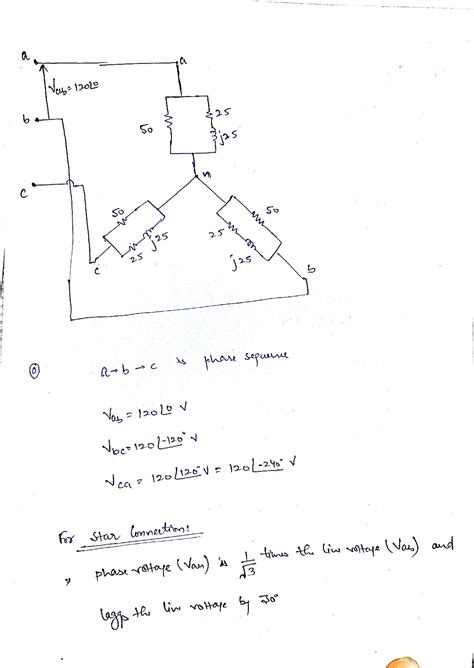 a
a
Vab = 120∠0
b
50
25
j25
c
n
50
50
25
j25
25
j25
c
b
⓪
a→b→c is phase sequence
Vab = 120∠0 V
Vbc = 120∠-120° V
Vca = 120∠120° V = 120∠-240° V
For star Connection:
phase voltage (Van) is 1/√3 times the line voltage (Vab) and
laggs the line voltage by 30°